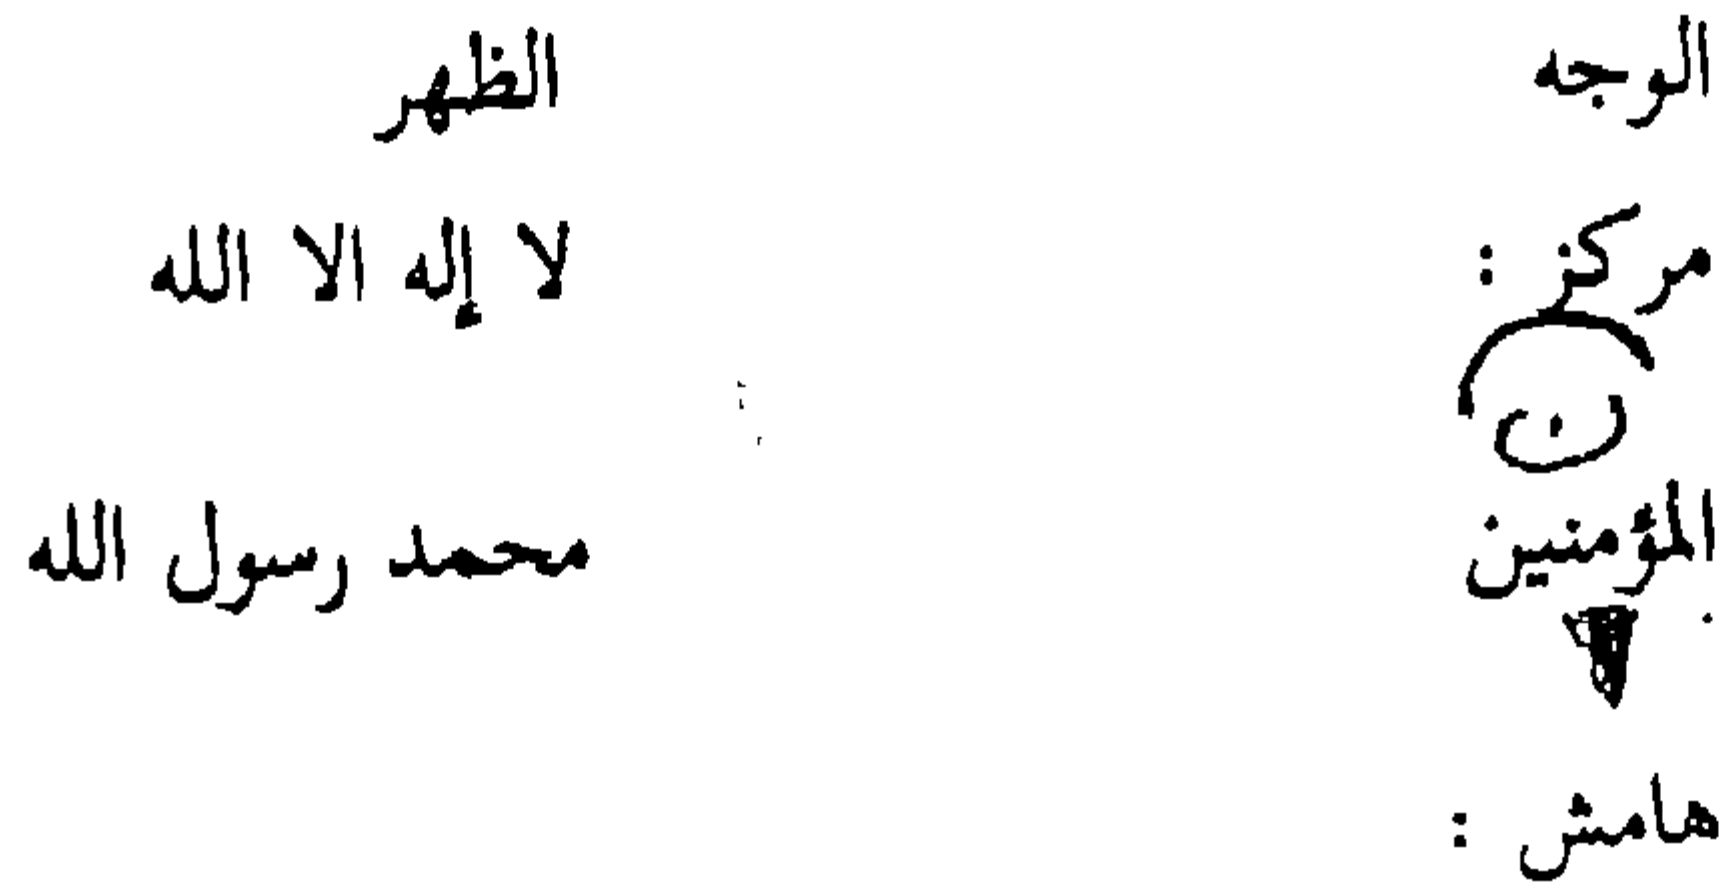 الوجه
مركز :
ن
المؤمنين
هامش :
الظهر
لا إله الا الله
محمد رسول الله